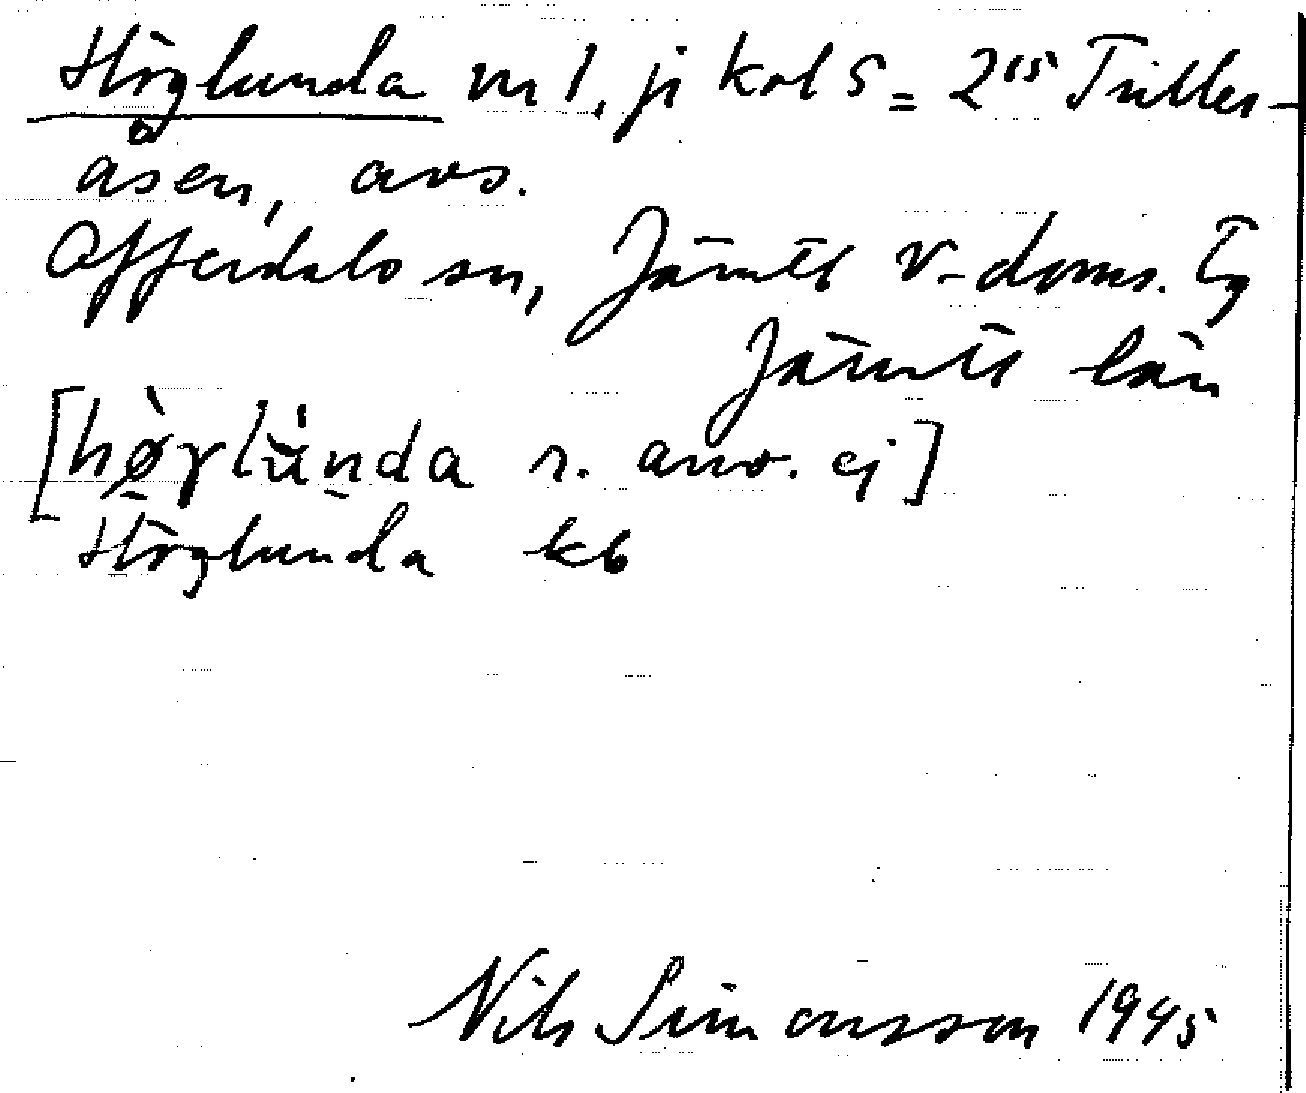 Höglunda nr 1, jr kol S = 2¹⁵ Triller-
åsen, avs.
Offerdals sn, Jämtl v. doms. tg
Jämtl län
[hø̀γlùnda r. anv. ej]
Höglunda kb
Nils Simonsson 1945